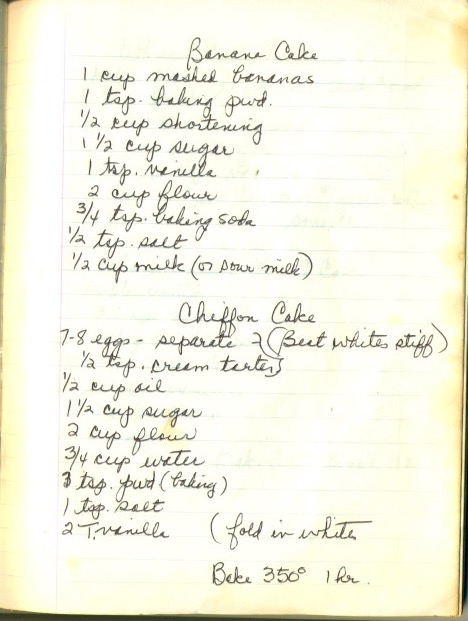 Banana Cake
1 cup mashed bananas
1 tsp. baking pwd.
1/2 cup shortening
1 1/2 cup sugar
1 tsp. vanilla
2 cup flour
3/4 tsp. baking soda
1/2 tsp. salt
1/2 cup milk (or sour milk)
Chiffon Cake
7-8 eggs - separate } (Beat whites stiff)
1/2 tsp. cream tarter }
1/2 cup oil
1 1/2 cup sugar
2 cup flour
3/4 cup water
3 tsp. pwd (baking)
1 tsp. salt
2 T. vanilla (fold in whites
Bake 350° 1 hr.